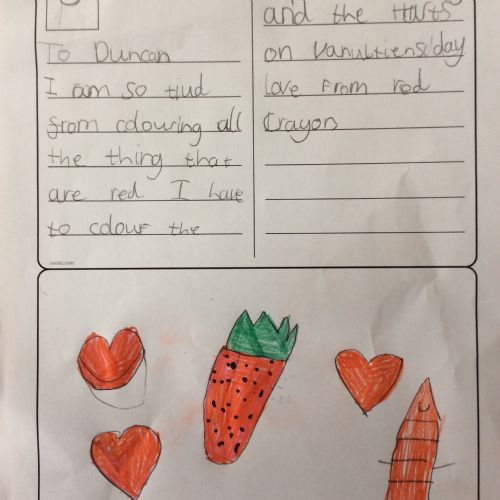 To Duncan
I am so tiud
from colouring all
the thing that
are red I have
to colour the
and the Harts
on Vanultiens/day
Love from red
Crayon